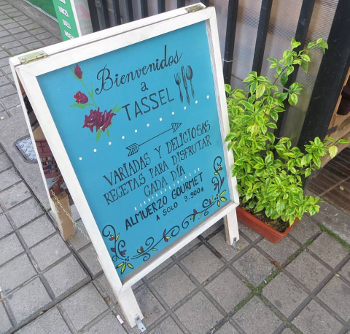 Bienvenidos
a
TASSEL
VARIADAS Y DELICIOSAS
RECETAS PARA DISFRUTAR
CADA DÍA
ALMUERZO GOURMET
A SOLO 3.980#